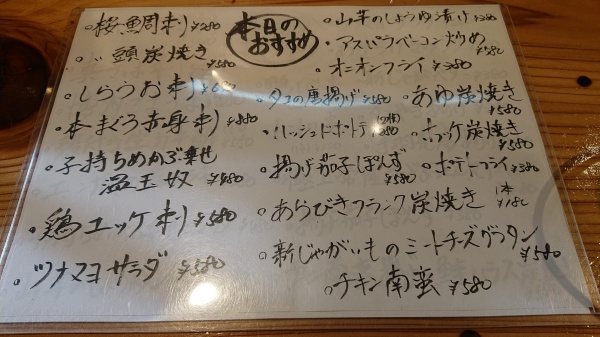 本日の
おすすめ
桜鯛刺 ¥780
〃頭炭焼き ¥580
しらうお刺 ¥680
本まぐろ赤身刺 ¥880
子持ちめかぶ乗せ
温玉奴 ¥480
鶏ユッケ刺 ¥580
ツナマヨサラダ ¥580
山芋のしょうゆ漬け ¥380
アスパラベーコン炒め ¥580
オニオンフライ ¥380
タコの唐揚げ ¥580
ハッシュドポテト ¥280
揚げ茄子ぽんず ¥580
あゆ炭焼き ¥580
ホッケ炭焼き ¥580
ポテトフライ ¥380
あらびきフランク炭焼き 1本 ¥180
新じゃがいものミートチーズグラタン ¥580
チキン南蛮 ¥580